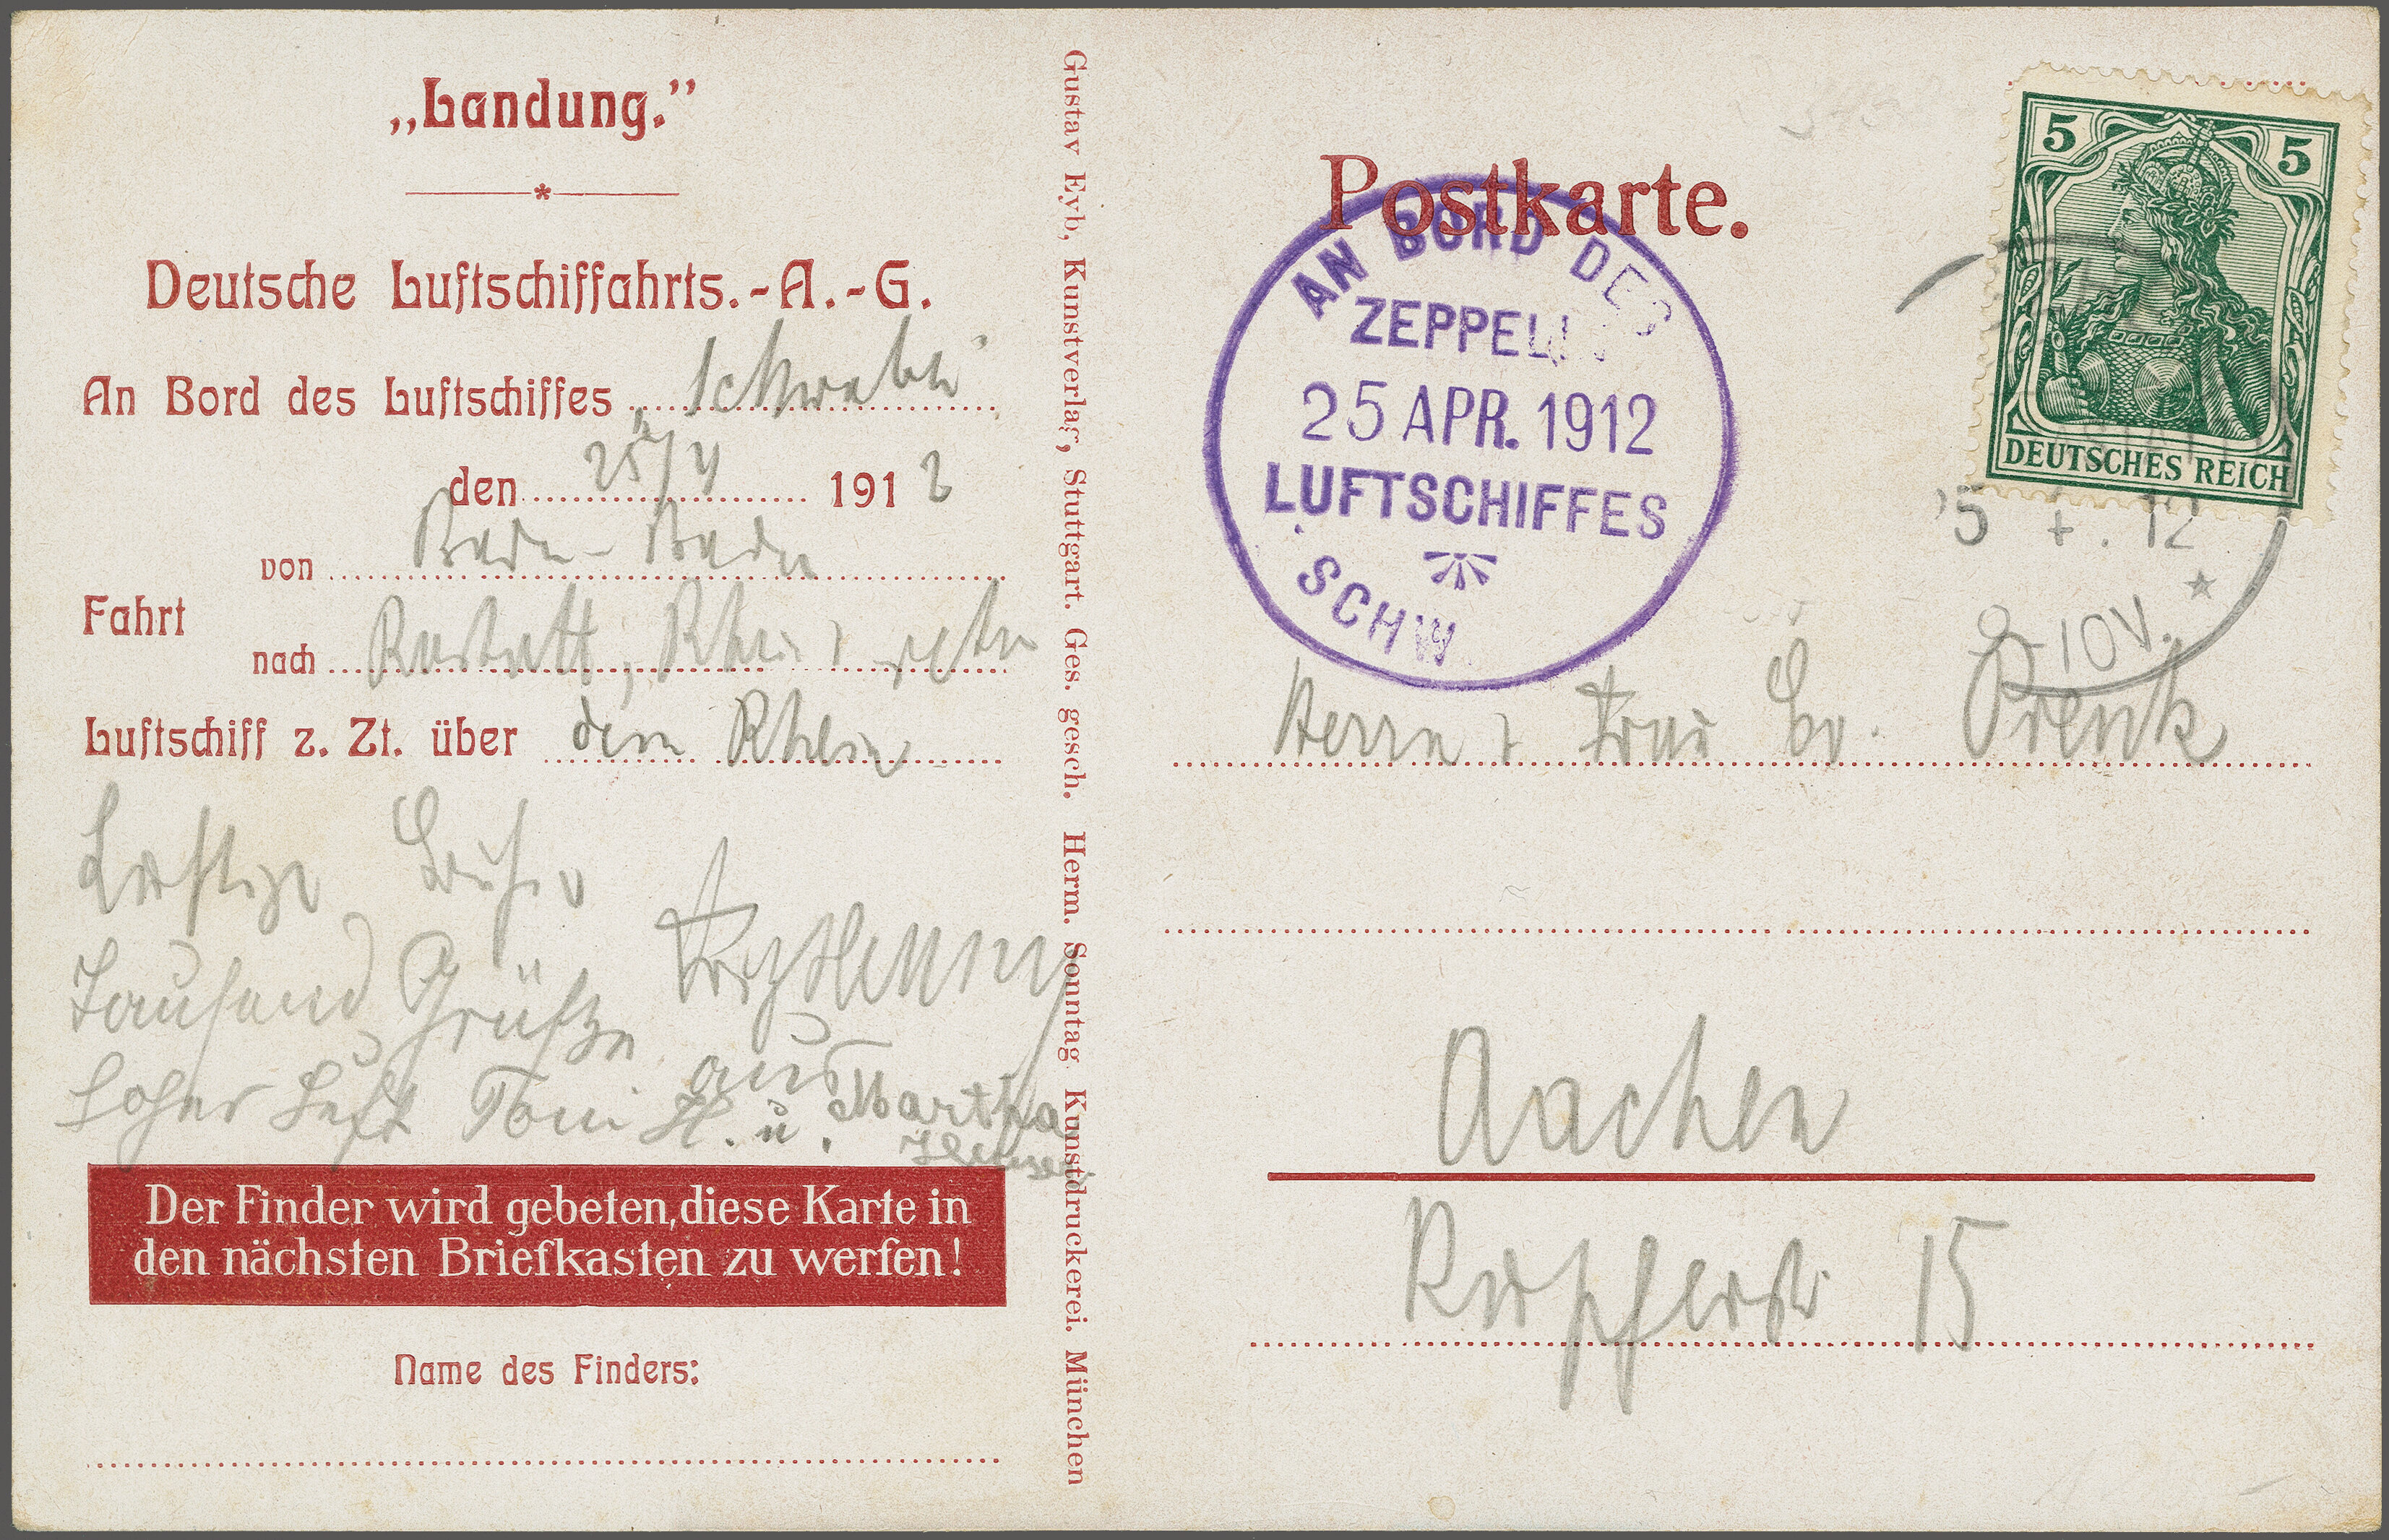 „Landung.”
Deutsche Luftschiffahrts.-A.-G.
An Bord des Luftschiffes „Schwaben"
den 25/4 1912
von Baden-Baden
Fahrt
nach Rastatt, Rhein
Luftschiff z. Zt. über dem Rhein
Tausend Grüße aus
hoher Luft Toni H. u. Martha
Der Finder wird gebeten, diese Karte in
den nächsten Briefkasten zu werfen!
Name des Finders:
Gustav Eyb, Kunstverlag, Stuttgart. Ges. gesch. Herm. Sonntag Kunstdruckerei. München
Postkarte.
AN BORD DES
ZEPPELIN
25 APR. 1912
LUFTSCHIFFES
SCHW
5 5
DEUTSCHES REICH
12
8-10V.
Herrn & Frau Dr. Prenk
Aachen
Kupferstr 15